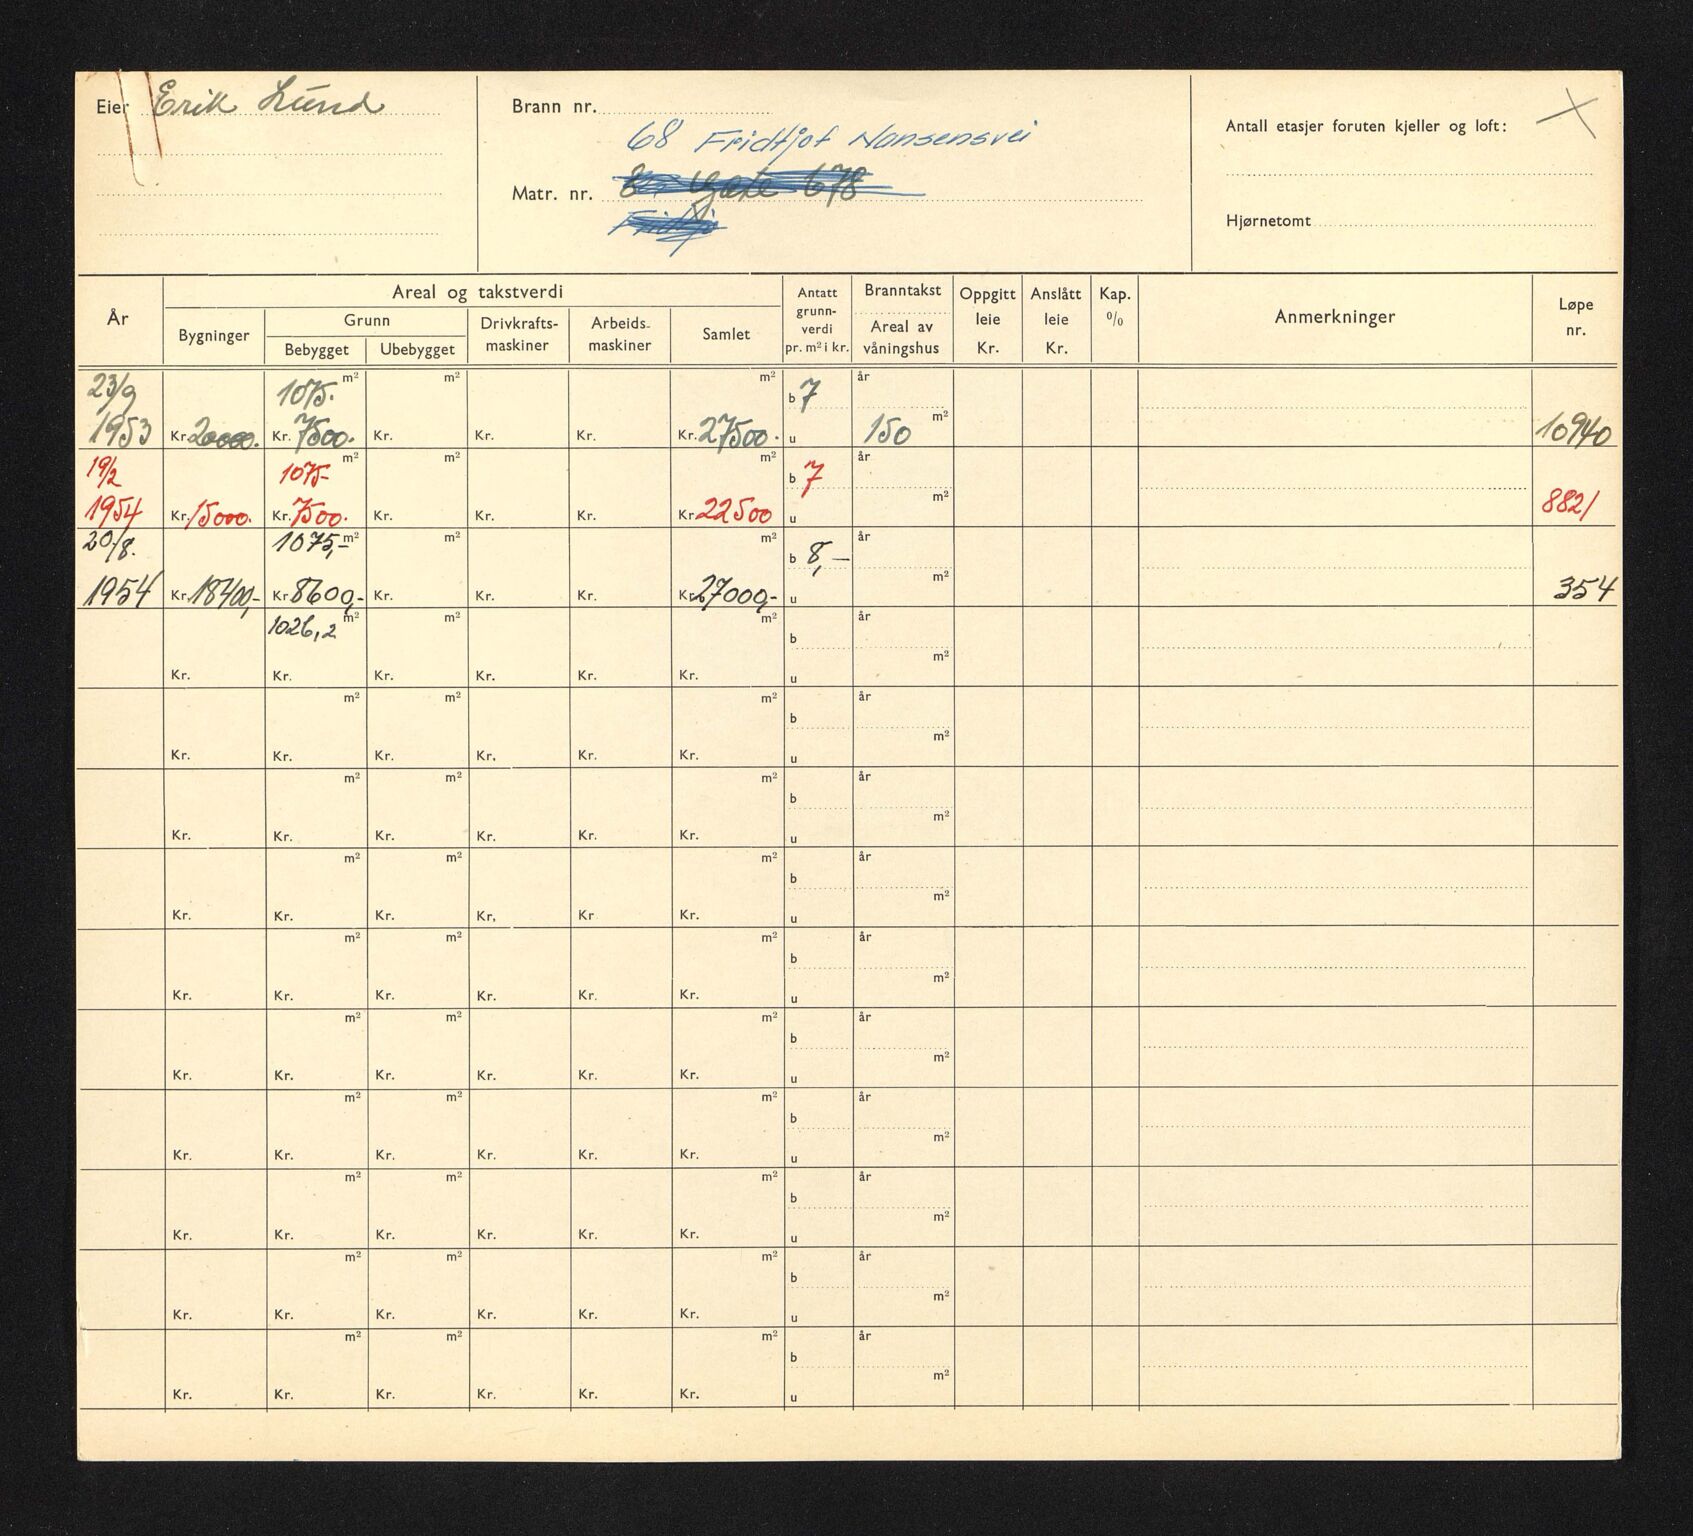 Eier Erik Lund
Brann nr.
68 Fridtjof Nansensvei
Matr. nr. gate 678
Fridtjo
Antall etasjer foruten kjeller og loft:
Hjørnetomt
År
Areal og takstverdi
Bygninger
Grunn
Bebygget
Ubebygget
Drivkrafts-
maskiner
Arbeids-
maskiner
Samlet
Antatt
grunn-
verdi
pr. m² i kr.
Branntakst
Areal av
våningshus
Oppgitt
leie
Kr.
Anslått
leie
Kr.
Kap.
%
Anmerkninger
Løpe
nr.
23/9 1075. m² m² m² b 7 år
1953 Kr. 20000. Kr. 7500. Kr. Kr. Kr. Kr. 27500. u 150 m² 10940
19/2 1075- m² m² m² b 7 år
1954 Kr. 15000. Kr. 7500. Kr. Kr. Kr. Kr. 22500 u m² 8821
20/8. 1075,- m² m² m² b 8,- år
1954 Kr. 18400,- Kr. 8600,- Kr. Kr. Kr. Kr. 27000,- u m² 354
1026,2 m² m² m² b år
Kr. Kr. Kr. Kr. Kr. Kr. u m²
m² m² m² b år
Kr. Kr. Kr. Kr. Kr. Kr. u m²
m² m² m² b år
Kr. Kr. Kr. Kr. Kr. Kr. u m²
m² m² m² b år
Kr. Kr. Kr. Kr. Kr Kr. u m²
m² m² m² b år
Kr. Kr. Kr. Kr. Kr. Kr. u m²
m² m² m² b år
Kr. Kr. Kr. Kr. Kr. Kr. u m²
m² m² m² b år
Kr. Kr. Kr. Kr. Kr. Kr. u m²
m² m² m² b år
Kr. Kr. Kr. Kr. Kr. Kr. u m²
m² m² m² b år
Kr. Kr. Kr. Kr. Kr. Kr. u m²
m² m² m² b år
Kr. Kr. Kr. Kr. Kr. Kr. u m²